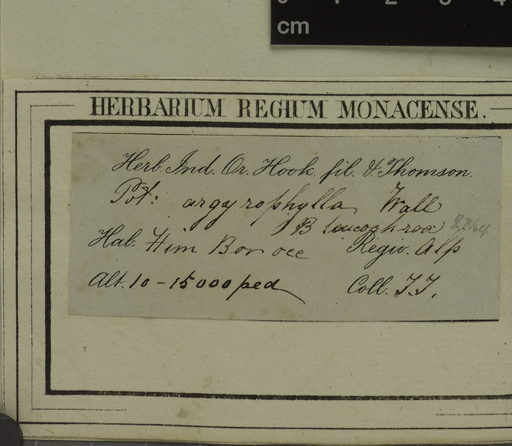 cm
HERBARIUM REGIUM MONACENSE.
Herb. Ind. Or. Hook. fil. & Thomson.
Pot: argyrophylla Wall
B leucochroa
Hab. Him Bor occ Regio. Alp
Alt. 10-15000 ped Coll. T.T.